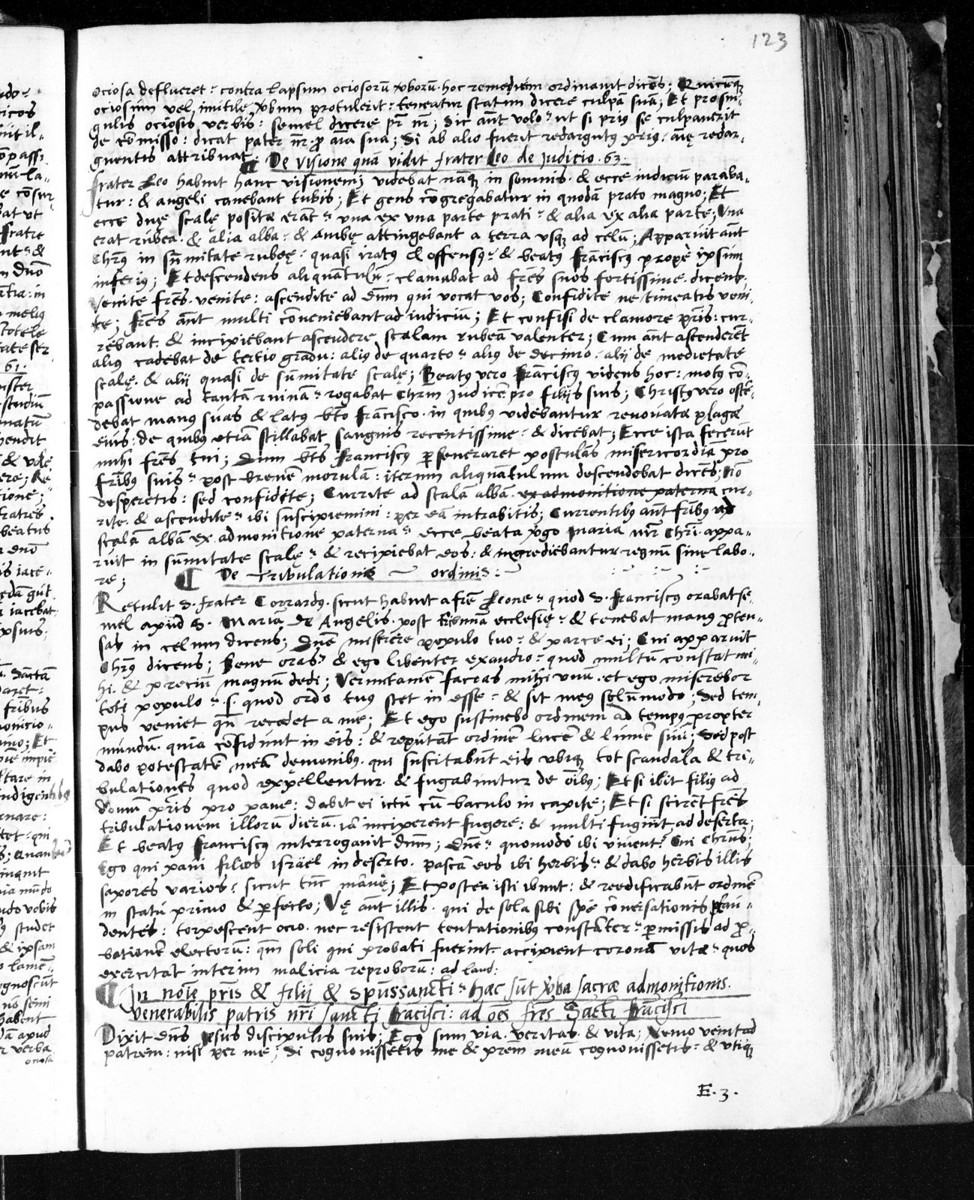 123
ociosa deflueret: contra lapsum ociosorũ v̓borũ: hoc remediũm ordinauit dicẽs; Quicũq
ociosum vel inutile v̓bum protulerit: teneatur statim dicere culpã suã; Et pro sin„
gulis ociosis verbis: semel dicere pr̃ nr̃; Sic aut volo: ut si prius se culpauerit
de cõmisso: dicat pater nr̃ p̱ aĩa sua; Si ab alio fuerit redargutꝰ: aĩe redar„
guentis attribuat.
De visione quã vidit frater Leo de Judicio. 63.
Frater Leo habuit hanc visionem; videbat nãq in somnis. & ecce iudiciũ paraba„
tur: & angeli canebant tubis; Et gens congregabatur in quodã prato magno; Et
ecce due scale posita erãt: una ex una parte prati: & alia ex alia parte; Una
erat rubea. & alia alba: & ambe attingebant a terra usq ad celũ; Apparuit aũt
Chrũs in sũmitate rubee: quasi iratꝰ & offensꝰ: & beatꝰ franciscꝰ prope ipsum
inferiꝰ; Et descendens aliquantulũ: clamabat ad frẽs suos fortissime. dicens;
Venite frẽs. venite: ascendite ad dũm qui vocat vos; Confidite ne timeatis veni„
te; frẽs aũt multi cõueniebant ad iudiciũ; Et confisi de clamore pr̃is: cur„
rebant. & incipiebant ascendere scalam rubeã valenter; Cum aũt ascenderẽt
aliꝰ cadebat de tertio gradu: aliꝰ de quarto: aliꝰ de decimo. alij de medietate
scale. & alij quasi de sũmitate scale; Beatꝰ vero franciscꝰ videns hoc: motꝰ cõ„
passione ad tantã ruinã: rogabat Chrm̃ Judicẽ pro filijs suis; Christꝰ vero ostẽ„
debat manꝰ suas & latꝰ bt̃o francisco. in quibꝰ videbantur renouata plagæ
eius: de quibꝰ etiã stillabat sanguis recentissime: & dicebat; Ecce ista fecerũt
mihi frẽs tui; Dum bt̃s franciscꝰ p̱seueraret postulãs misericordia pro
frĩbꝰ suis: post breuẽ morulã: iterum aliquantulum descendebat dicẽs; Nõ
desperetis: sed confidete; Currite ad scalã albã. ex admonitione paterna cur„
rite. & ascendite: ibi suscipiemini: per eã intrabitis; Currentibꝰ aũt frĩbꝰ ad
scalã albã ex admonitione paterna: ecce beata v̓go Maria mr̃ Chrĩ appa„
ruit in sũmitate scale: & recipiebat eos: & ingrediebantur regnũ sine labo„
re;
De Tribulatione ordinis:
Retulit S. frater Corradꝰ. sicut habuit a frẽ Leone: quod S. franciscꝰ orabat se„
mel apud S. Maria de Angelis. post tribunã ecclesie: & tenebat manꝰ p̱ten„
sas in celum dicens; Dñe miserere populo tuo: & parce ei; Cui apparuit
Chrũs dicens; Bene oras: & ego libenter exaudio: quod multũ constat mi„
hi. & preciũ magnũ dedi; Verumtamẽ facias mihi unũ. et ego miserebor
toti populo: s. quod ordo tuꝰ stet in esse: & sit meꝰ solũmodo; Sed tem„
pus veniet qñ recedet a me; Et ego sustinebo ordinem ad tempꝰ propter
mundũ. quia cõfidunt in eis: & reputãt ordinẽ lucẽ & lumẽ suũ; Sed post
dabo potestatẽ meã demonibꝰ. qui suscitabũt eis ubiq tot scandala & tri„
bulationes quod expellentur. & fugabuntur de oĩbꝰ; Et si ibit filiꝰ ad
domũ pr̃is pro pane: dabit ei ictũ cũ baculo in capite; Et si scirẽt frẽs
tribulationem illorũ dierũ. iã inciperent fugere: & multi fugiũt ad deserta;
Et beatꝰ franciscꝰ interrogauit dũm; Dñe: quomodo ibi viuent? Cui Chrũs;
Ego qui paui filios israel in deserto. pascã eos ibi herbis: & dabo herbis illis
sapores varios: sicut tũc mãnę; Et postea isti ibunt: & reedificabũt ordinẽ
in statũ primo & p̱fecto; Vę aũt illis. qui de sola sibi spẽ conuersationis gau„
dentes: torpescent ocio. nec resistent tentationibꝰ constãter: p̱missis ad p̱„
bationẽ electorum: qm̃ soli qui probati fuerint: accipient coronã vitæ: quos
exercitat interim malicia reproborũ: ad laud:
In noĩe pr̃is & filij & Spũssancti: hæc sũt v̓ba sacræ admonitionis.
venerabilis patris nr̃i sancti frãcisci: ad oẽs frẽs Sacti frãcisci
Dixit dñs Jesus discipulis suis; Ego sum via. veritas & vita; Nemo venit ad
patrem: nisi per me; Si cognouissetis me & p̃rem meũ cognouissetis: & utiq
E. 3.